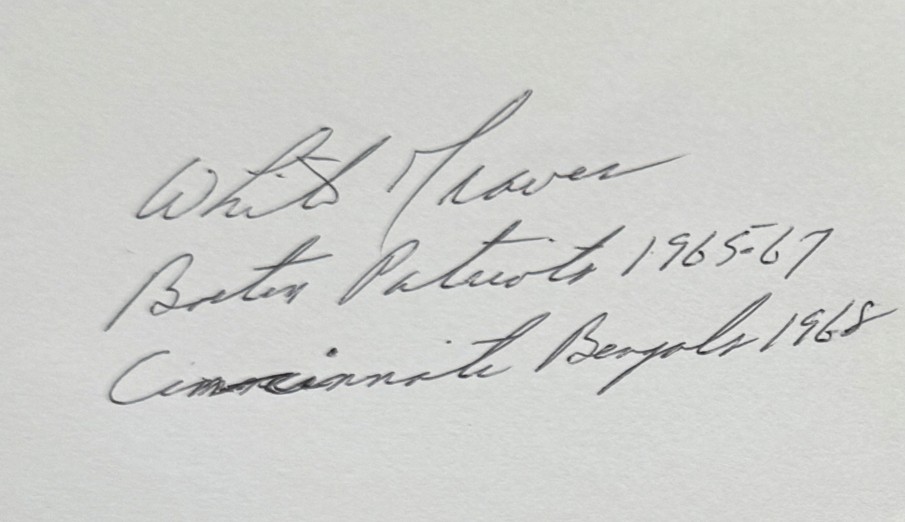 Whit Graves
Boston Patriots 1965-67
Cincinnati Bengals 1968